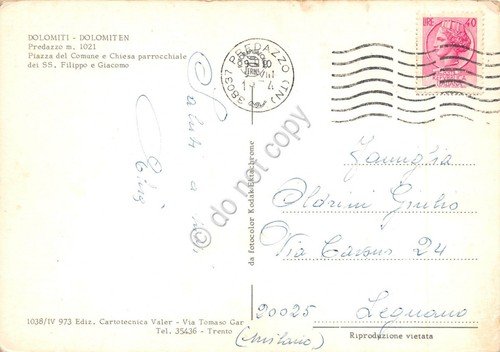 DOLOMITI - DOLOMITEN
Predazzo m. 1021
Piazza del Comune e Chiesa parrocchiale
dei SS. Filippo e Giacomo
38037 PREDAZZO (TN)
LIRE 40
Saluti a
do not copy
da fotocolor Kodak Ektachrome
Famiglia
Oldrini Giulio
Via Cavour 24
20025 Legnano
(Milano)
1038/IV 973 Ediz. Cartotecnica Valer - Via Tomaso Gar
Tel. 35436 - Trento
Riproduzione vietata